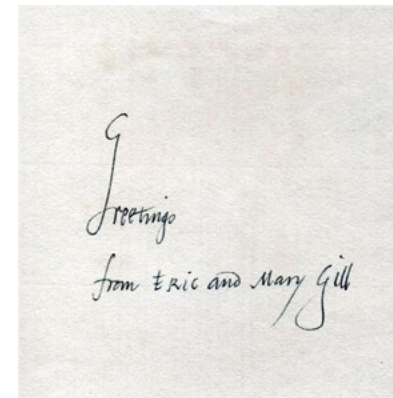 Greetings
from Eric and Mary Gill